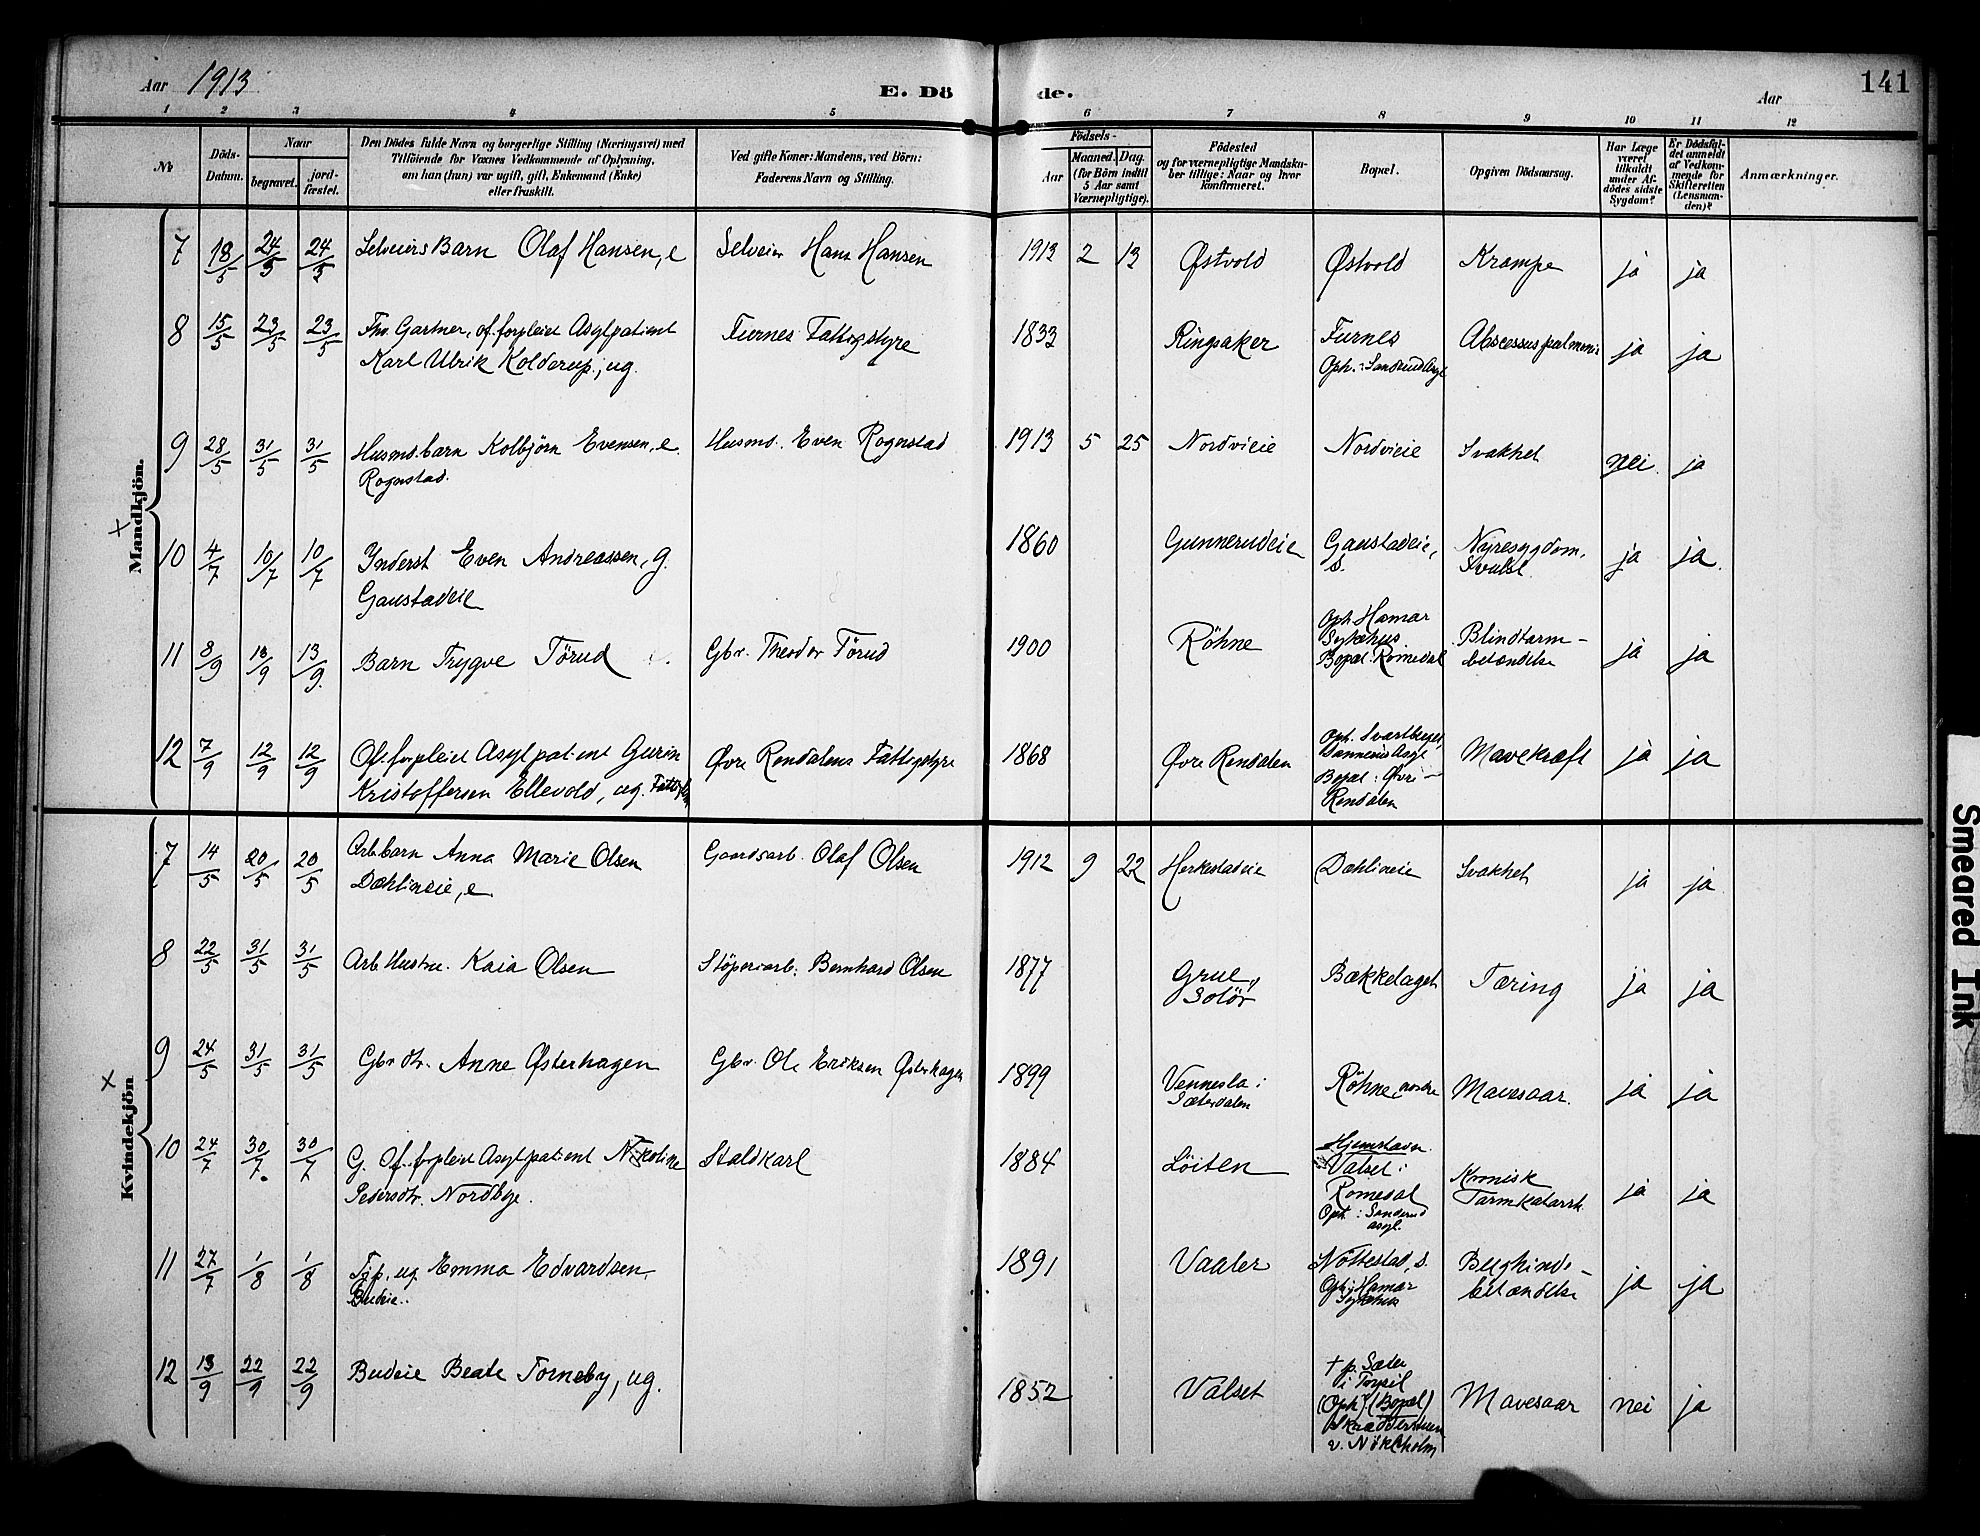 Aar 1913
E. Dö
de.
Aar
141
1 2 3 4 5 6 7 8 9 10 11 12
No
Döds-
Datum.
Naar
begravet.
jord-
fæstet.
Den Dödes fulde Navn og borgerlige Stilling (Næringsvei) med
Tilföiende for Voxnes Vedkommende af Oplysning,
om han (hun) var ugift, gift, Enkemand (Enke)
eller fraskilt.
Ved gifte Koner: Mandens, ved Börn:
Faderens Navn og Stilling.
Födsels-
Aar
Maaned. Dag.
(for Börn indtil
5 Aar samt
Værnepligtige).
Födested
og for værnepligtige Mandska-
ber tillige: Naar og hvor
konfirmeret.
Bopæl.
Opgiven Dödsaarsag.
Har Læge
været
tilkaldt
under Af-
dödes sidste
Sygdom?
Er Dödsfal-
det anmeldt
af Vedkom-
mende for
Skifteretten
(Lensman-
den)?
Anmærkninger.
Mandkjön.
7 18/5 24/5 24/5 Selveiers Barn Olaf Hansen, e Selveier Hans Hansen 1913 2 13 Østvold Østvold Krampe ja ja
8 15/5 23/5 23/5 Fhv. Gartner, of. forpleiet Asylpatient Furnes Fattigstyre 1833 Ringsaker Furnes Abscessus pulmonis ja ja
Karl Ulrik Kolderup, ug. Oph.: Sanderud Asyl
9 28/5 31/5 31/5 Husmd. barn Kolbjörn Evensen, e. Husmd. Even Rogerstad 1913 5 25 Nordvieie Nordvieie Svakhet nei. ja
Rogerstad.
10 4/7 10/7 10/7 Inderst Even Andreassen, g. 1860 Gunnerudeie Gaustadeie, Nyresygdom, ja ja.
Gaustadeie S. Svulst.
11 8/9 13/9 13/9 Barn Trygve Törud Gbr. Theodor Törud 1900 Röhne Oph. Hamar
Sykehus
Bopæl. Romedal Blindtarm-
betændelse ja ja
12 7/9 12/9 12/9 Of. forpleiet Asylpatient Gurin Øvre Rendalens Fattigstyre 1868 Øvre Rendalen
Kristoffersen Ellevold, ug.
Bopæl: Øvre-
Rendalen Mavekræft ja ja
Kvindekjön
7 14/5 20/5 20/5 Arb. barn Anna Marie Olsen Gaardsarb. Olaf Olsen 1912 9 22 Herkestadeie Dæhlineie Svakhet ja ja
Dæhlineie, e
8 22/5 31/5 31/5 Arb. Hustru. Kaia Olsen Stöperiarb. Bernhard Olsen 1877 Grue, Bækkelaget Tæring ja ja
Solör
9 24/5 31/5 31/5 Gbr. dtr. Anne Østerhagen Gbr. Ole Eriksen Østerhagen 1899 Vennesla i Röhne, nordre Mavesaar. ja ja
Sæterdalen
10 24/7 30/7. 30/7 G. Of. forpleiet Asylpatient Nikoline Staldkarl 1884 Löiten Hjemstavn.
Pedersdtr. Nordbye. Valset i
Romedal
Oph.: Sanderud
asyl. Kronisk
Tarmkatarrh. ja ja
11 27/7 1/8 1/8 Tjp. ug. Emma Edvardsen, 1891 Vaaler Nöttestad, S.
Budeie.. Oph. i Hamar
Sykehus Bughinde-
betændelse ja ja
12 13/9 22/9 22/9 Budeie Beate Torneby, ug. 1852 Valset † p. Sæter
i Trysil
(Oph.) (Bopæl)
Skrædderstuen
v. Nökleholm Mavesaar nei ja
Smeared Ink